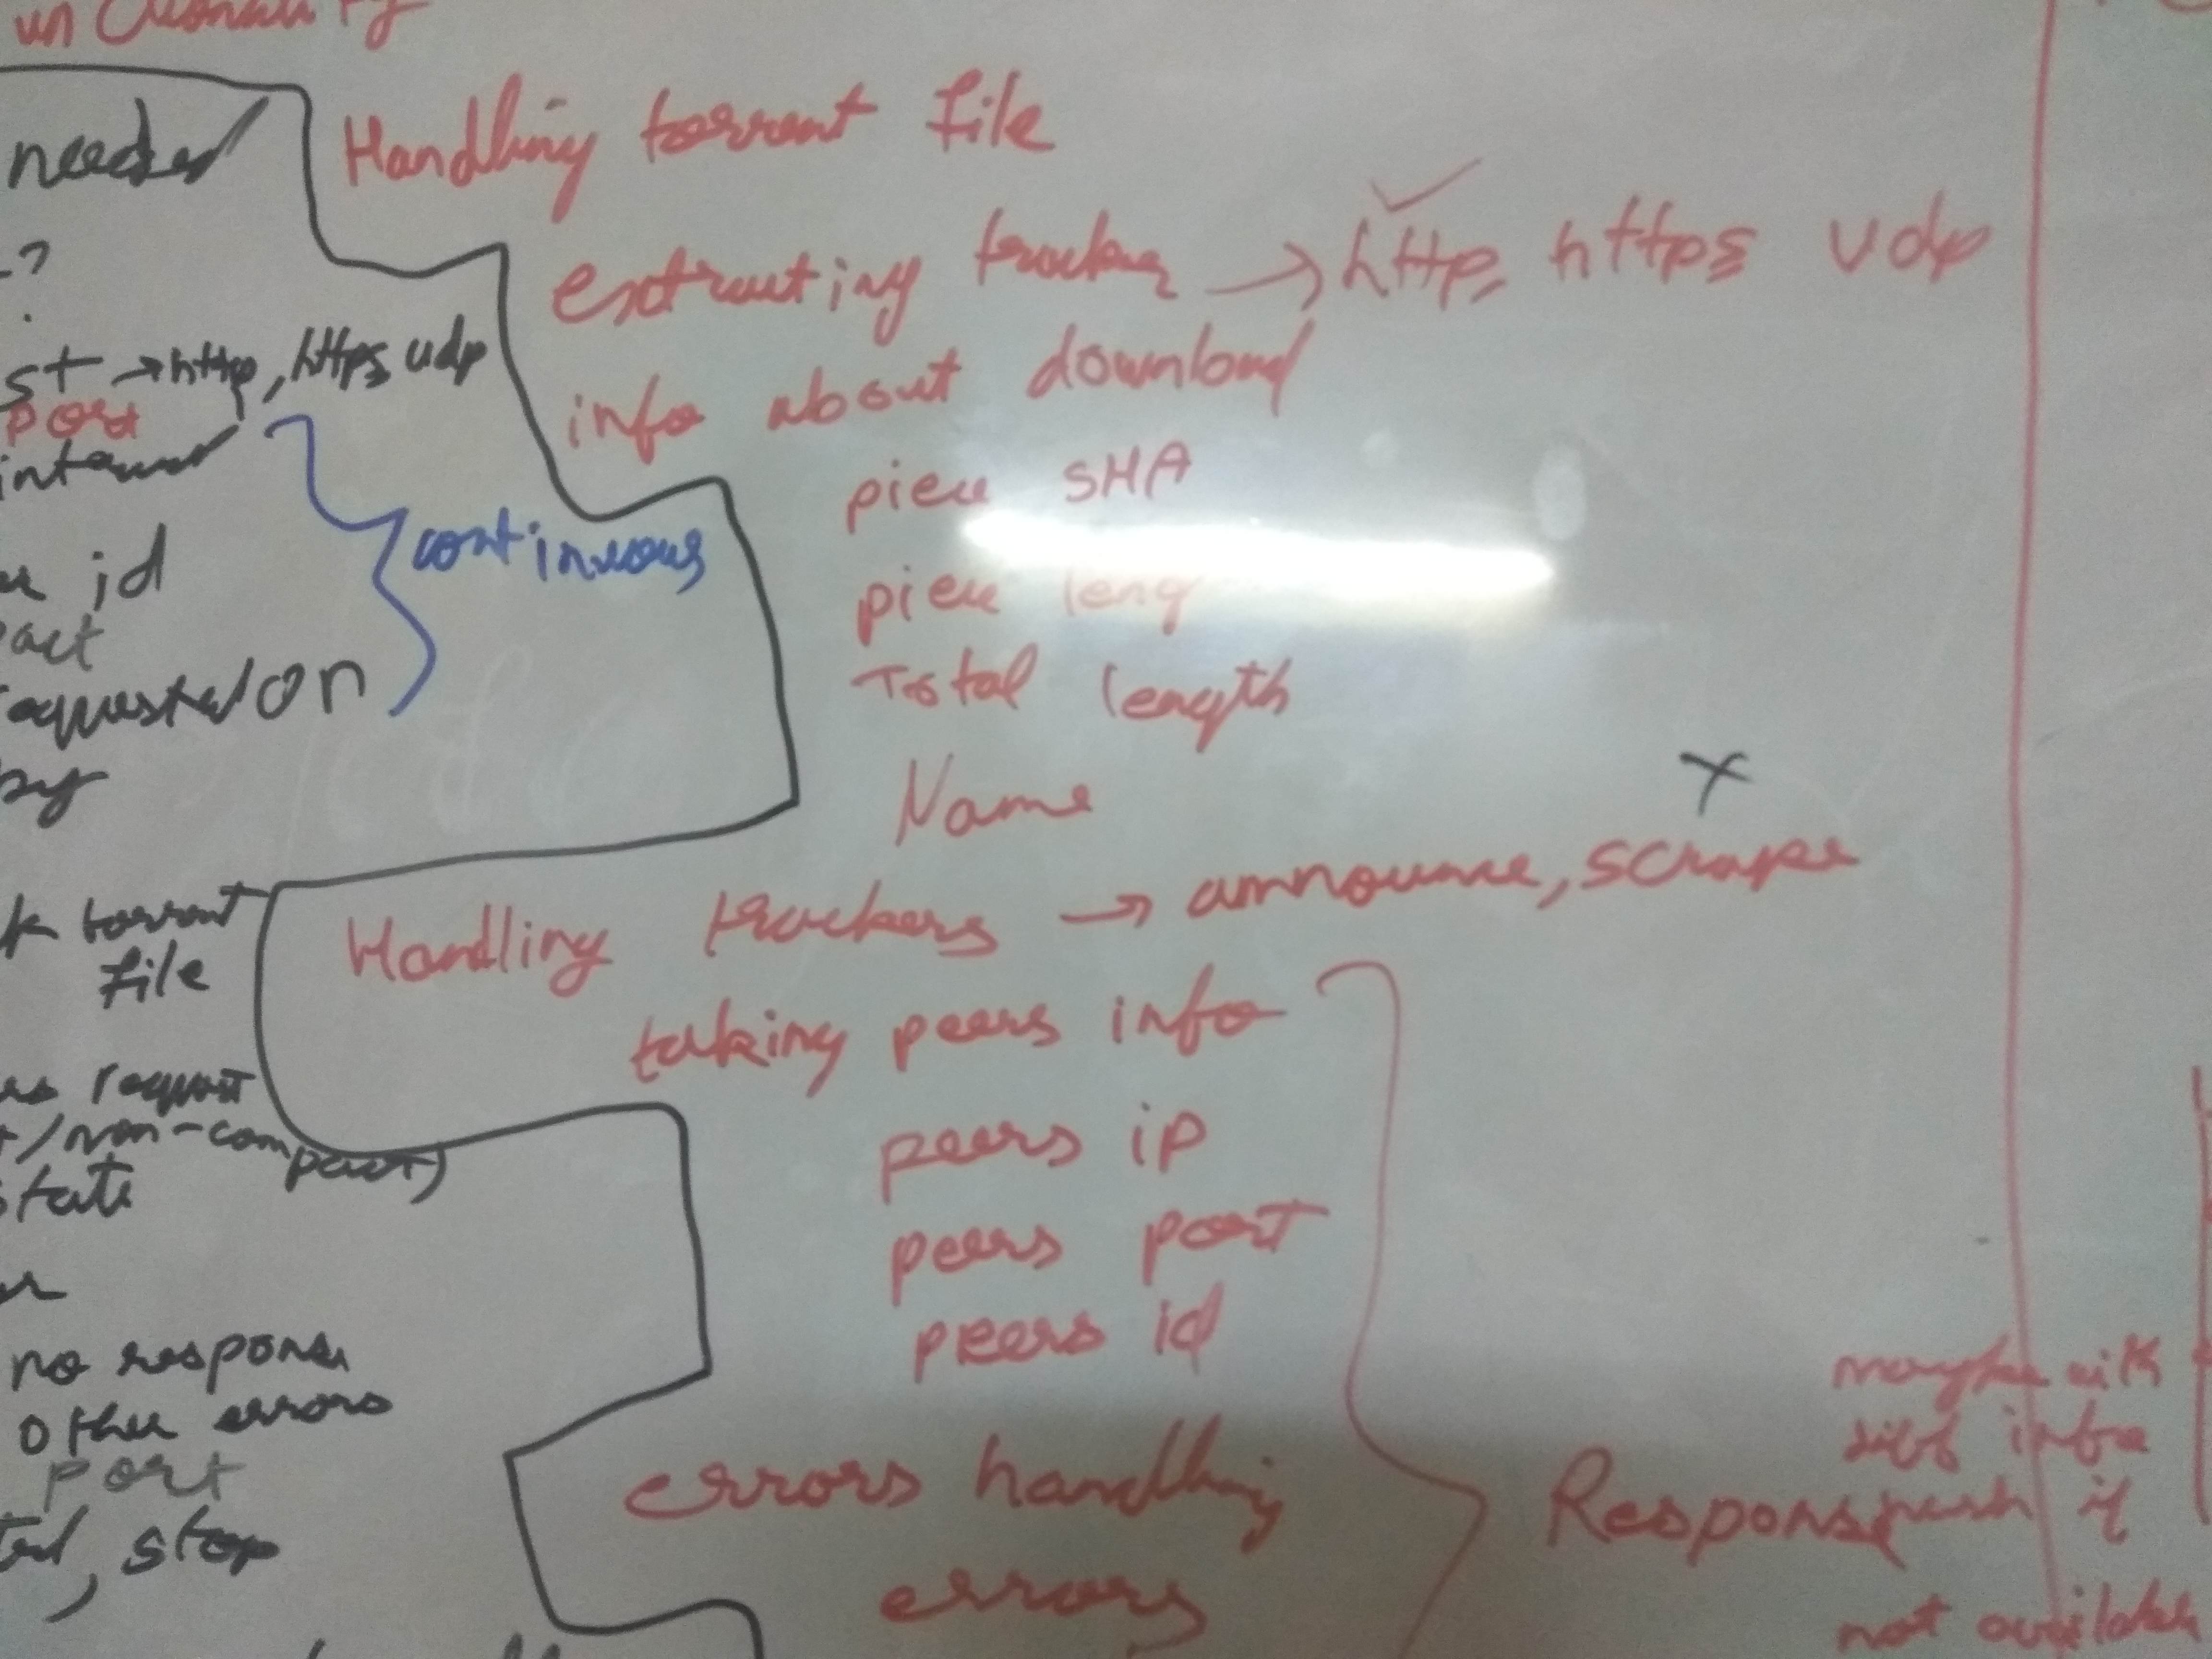 needed
?
st → http, https udp
port
continuous
id
requested on
by
torrent
file
request
/non-compact)
state
no respons
other errors
port
, stop
Handling torrent file
extracting tracker → http, https udp
info about download
piece SHA
piece leng
Total length
Name
Handling trackers → announce, scrape
taking peers info
peers ip
peers port
peers id
errors handling
errors
Response
not available